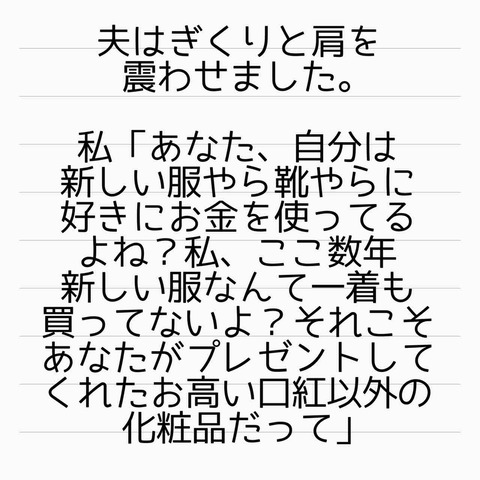 夫はぎくりと肩を
震わせました。
私「あなた、自分は
新しい服やら靴やらに
好きにお金を使ってる
よね？私、ここ数年
新しい服なんて一着も
買ってないよ？それこそ
あなたがプレゼントして
くれたお高い口紅以外の
化粧品だって」